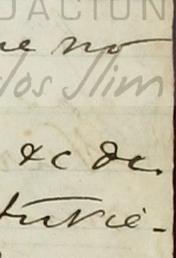 DACIÓN
ue no
los Slim
&c de
tuvie-